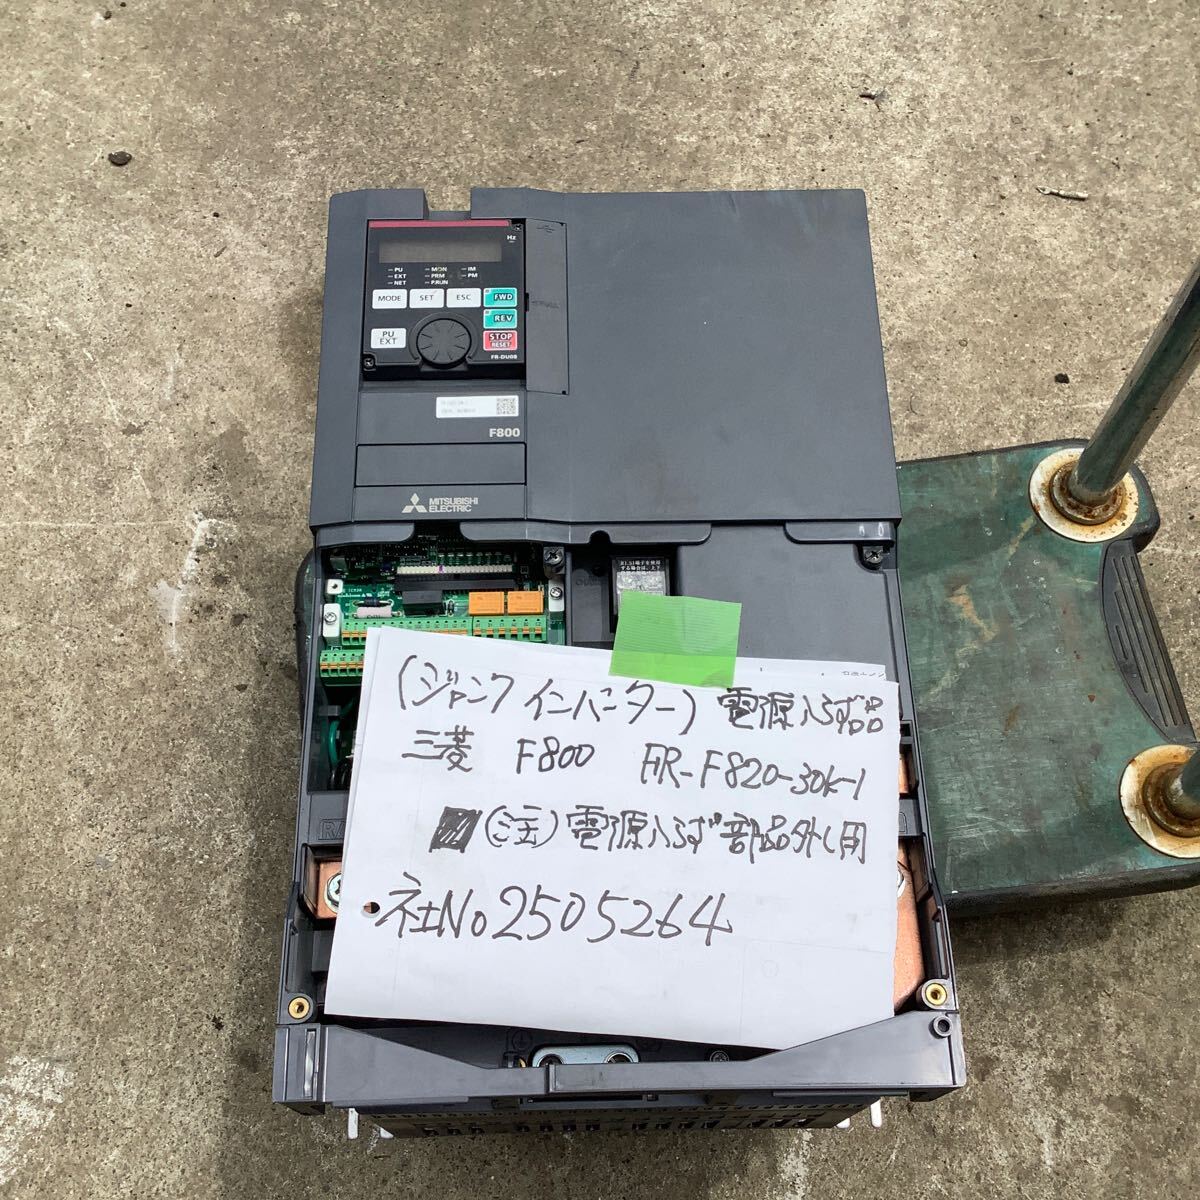 Hz
PU MON IM
EXT PRM PM
NET P.RUN
MODE SET ESC FWD
REV
PU EXT
STOP RESET
FR-DU08
F800
MITSUBISHI
ELECTRIC
R1,S1端子を使用
する場合は、上下
(ジャンクインバーター) 電源入らず品
三菱 F800 FR-F820-30K-1
(注) 電源入らず部品外し用
・社No 2505264